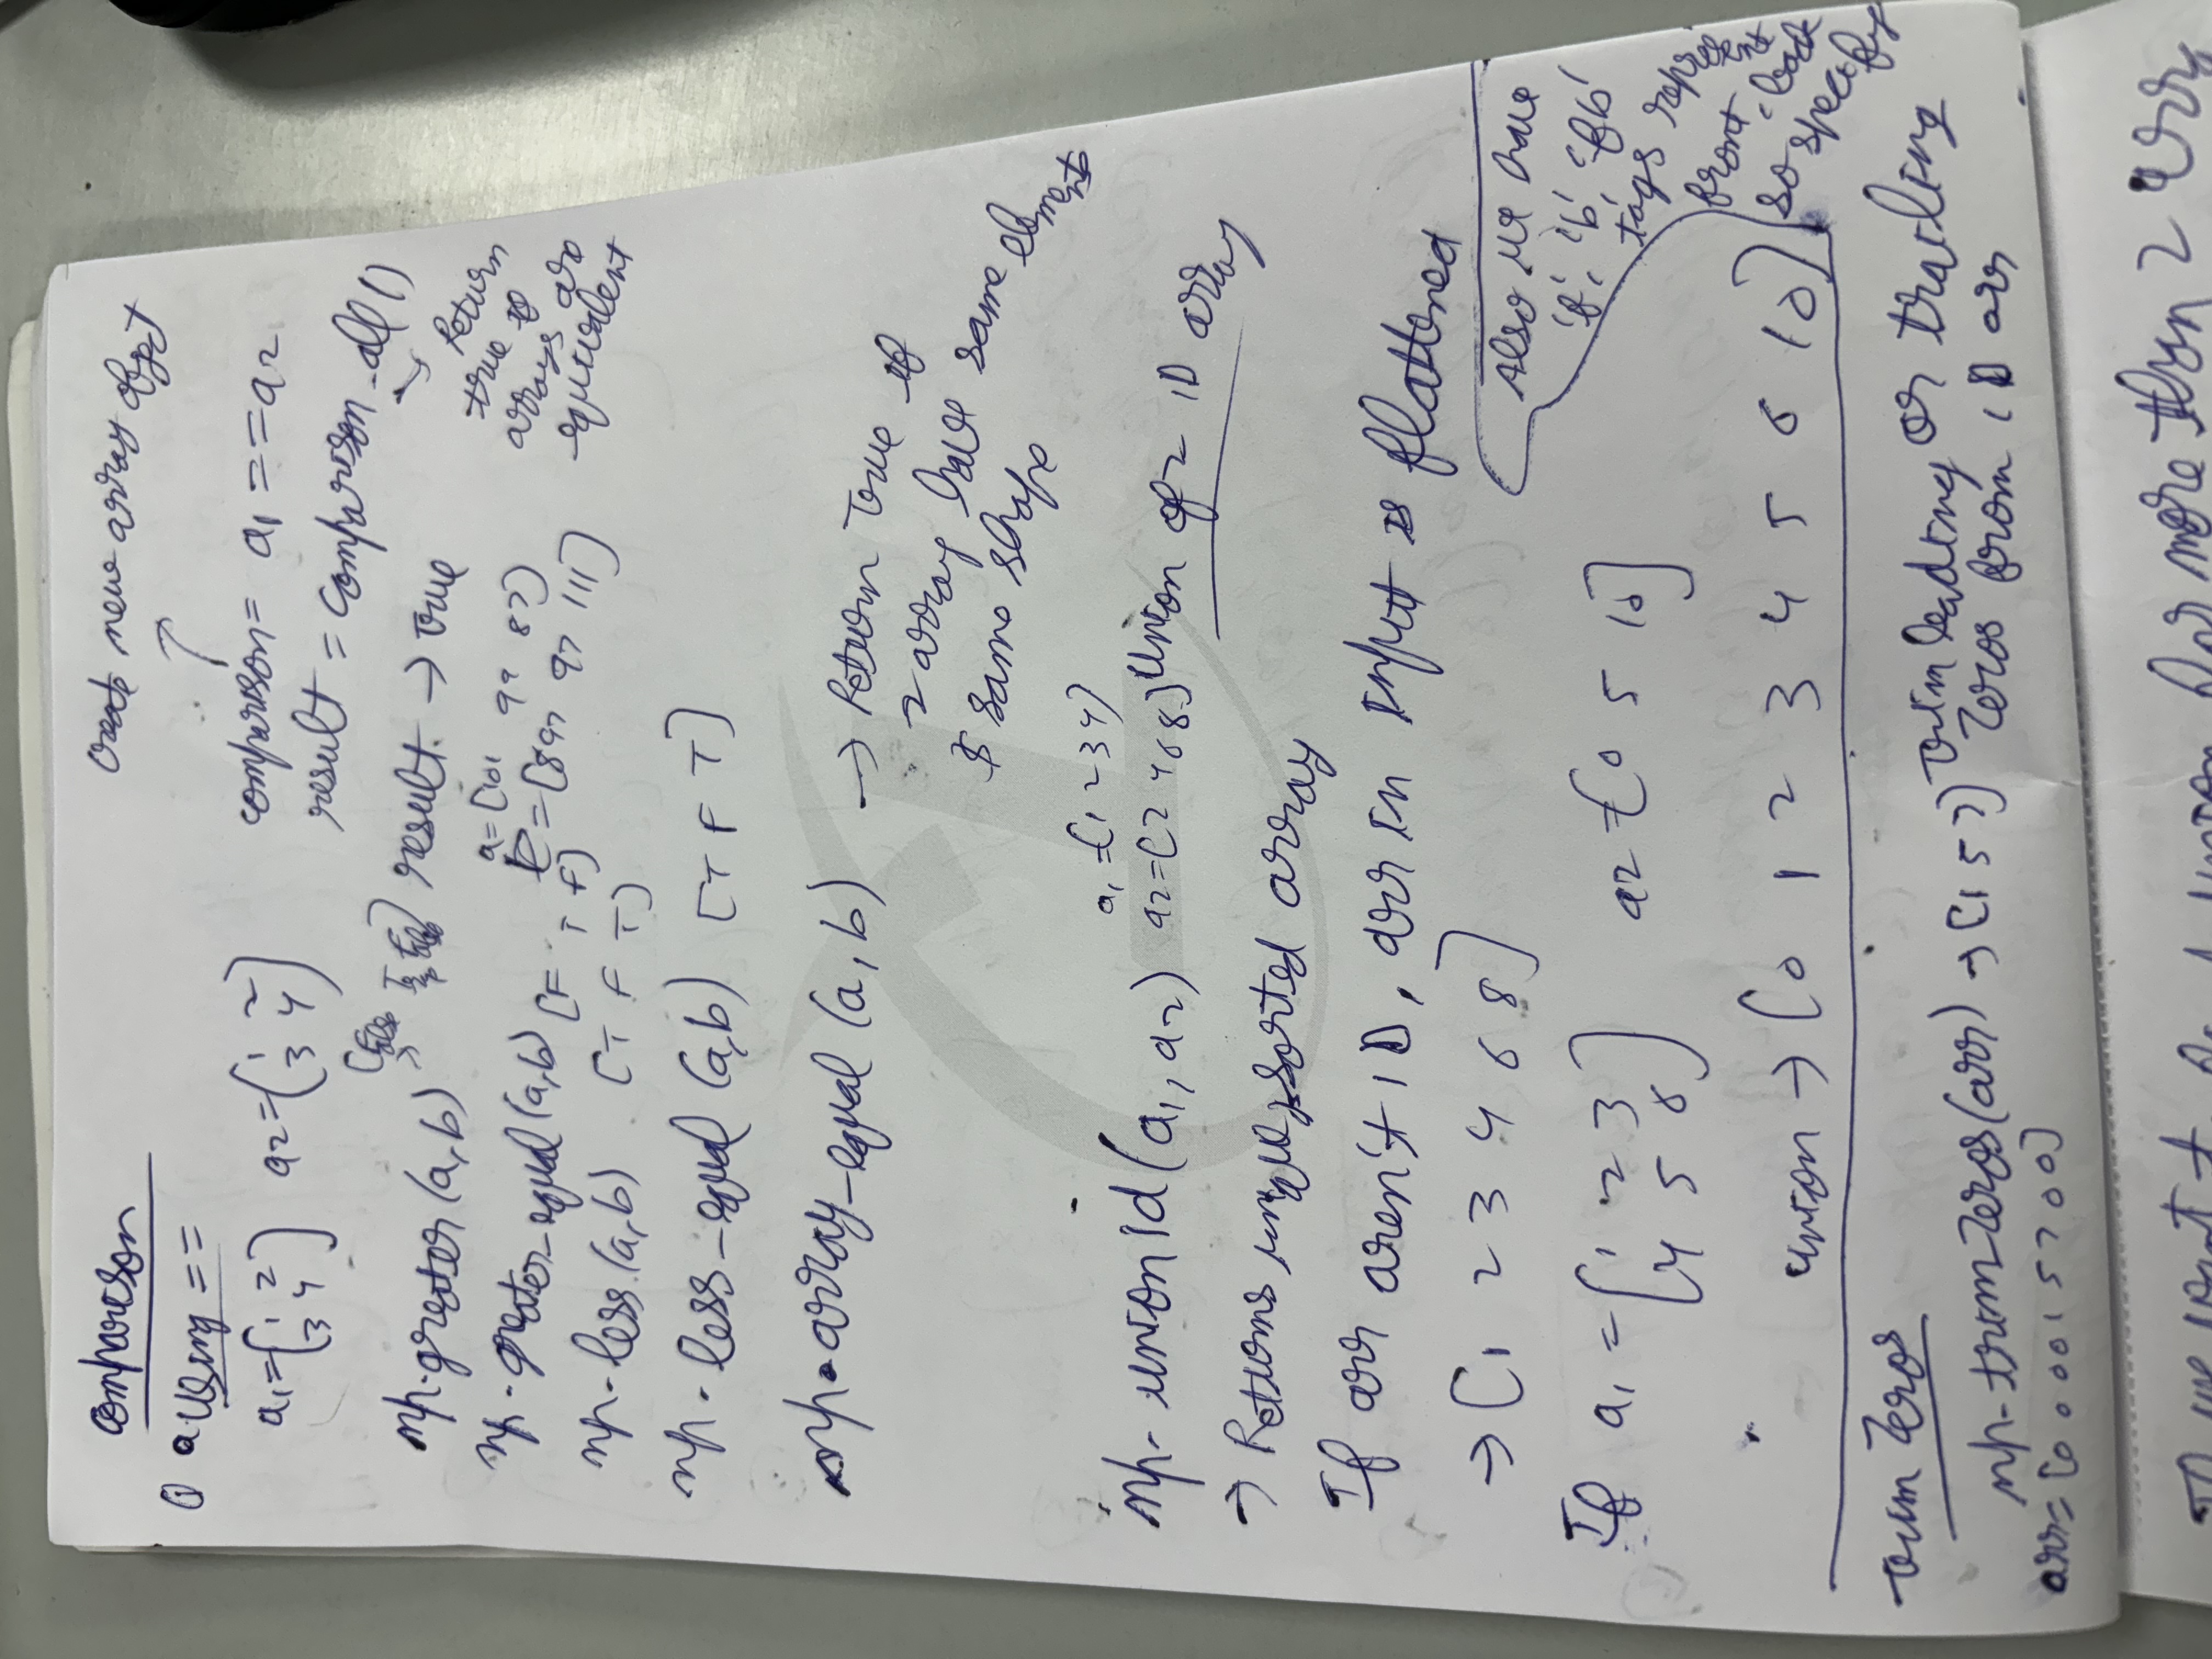 comparison
create new array object
① a using ==
a1 = [1 2
3 4]
a2 = [1 2
3 4]
comparison = a1 == a2
result = comparison.all()
→ Return
true if
arrays are
equivalent
result. → True
np.greater(a,b) → [False True False]
a = [101 99 87]
b = [897 97 111]
np.greater_equal(a,b) [F T F]
np.less(a,b) [T F T]
np.less_equal(a,b) [T F T]
np.array_equal(a,b) → Return True if
2 array have same elements
& same shape
np.union1d(a1, a2)
a1 = [1 2 3 4]
a2 = [2 4 6 8]
union of 2 1D array
→ Returns unique, sorted array
If arr aren't 1D, arr in input is flattened
→ [1 2 3 4 6 8]
If a1 = [1 2 3
4 5 6]
a2 = [0 5 10]
union → [0 1 2 3 4 5 6 10]
Also we have
'f', 'b', 'fb'
tags represent
front, back
so specify
Trim Zeros
np.trim_zeros(arr) → [1 5 7]
Trim leading or trailing
zeros from 1D arr
arr = [0 0 0 0 1 5 7 0 0]
If we want to find union for more than 2 arr